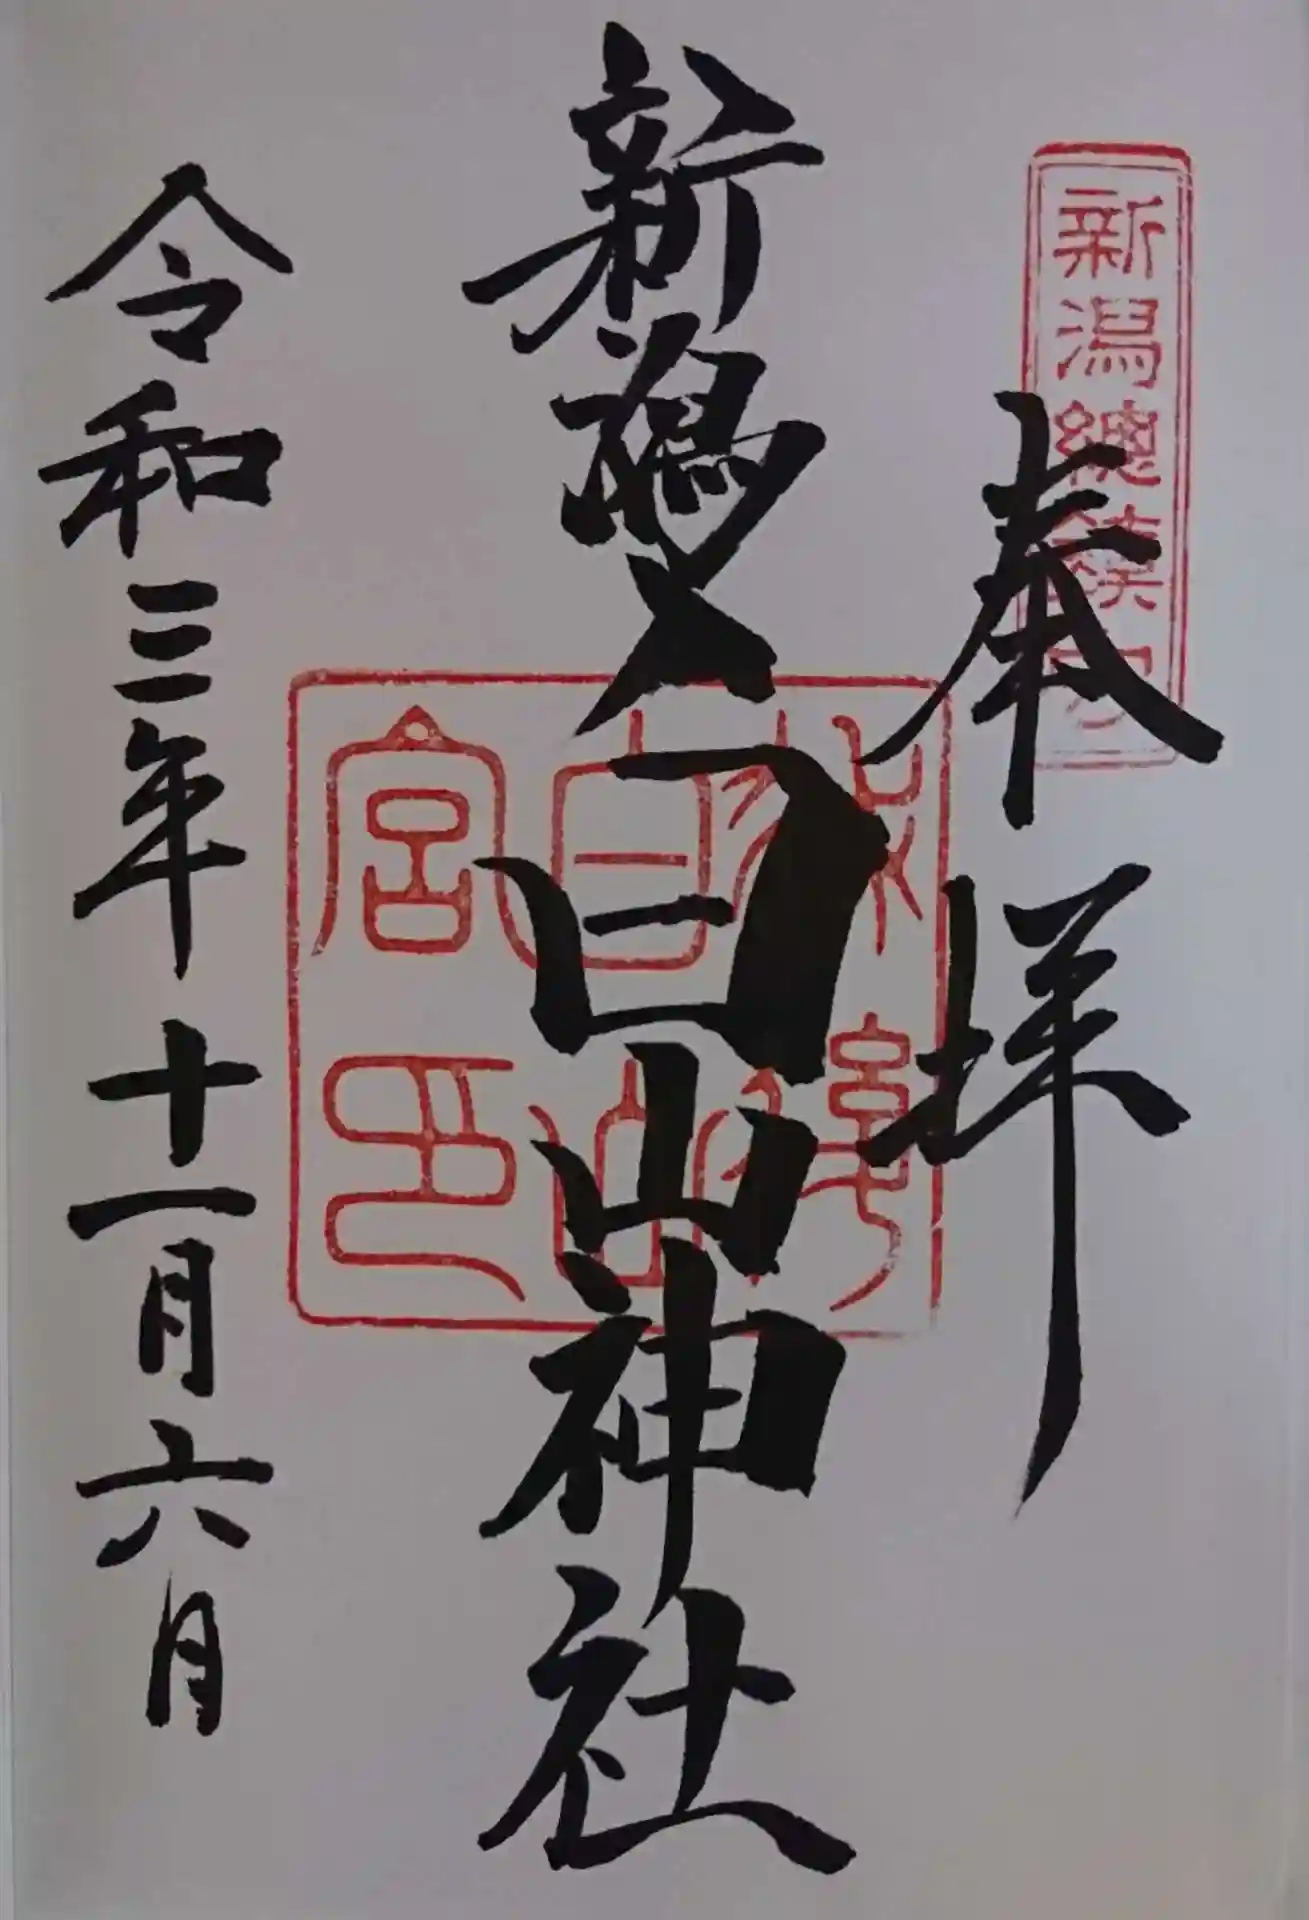 新潟總鎮守
奉拝
新潟白山神社
白山
宮印
令和三年十一月六月